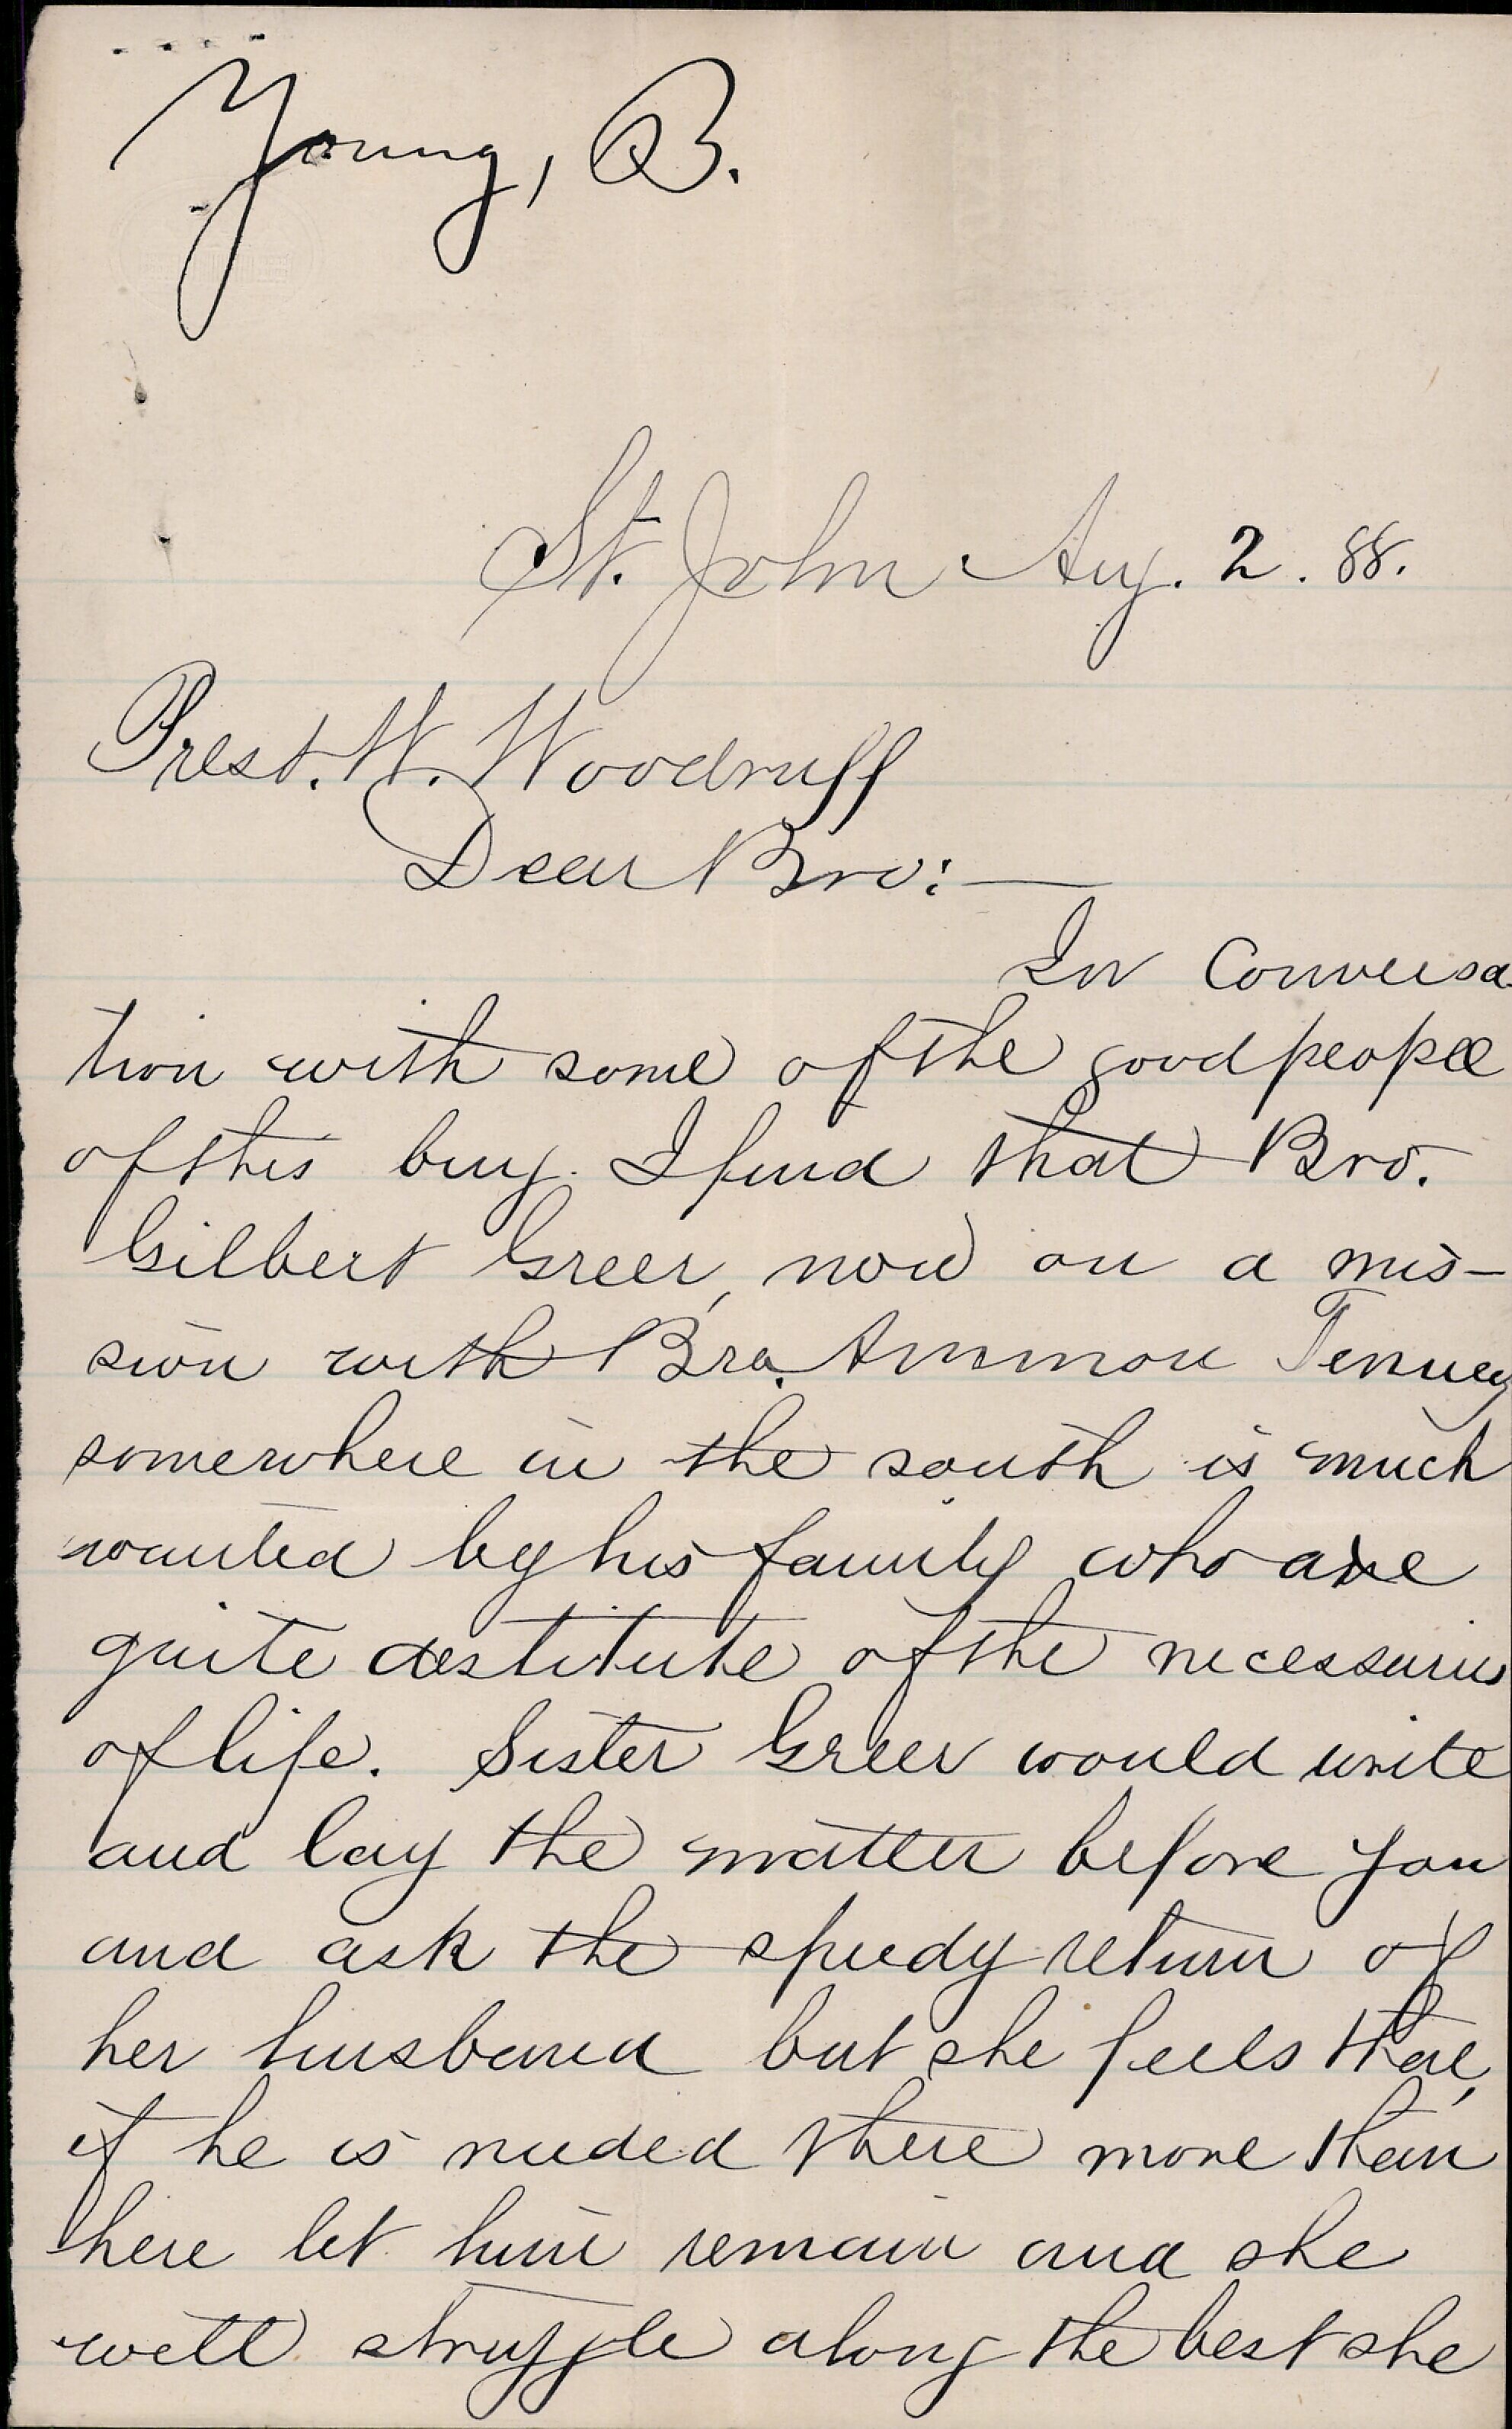 Young, B.
St. John Aug. 2. 88.
Prest. W. Woodruff
Dear Bro:—
In Conversa-
tion with some of the good people
of this burg. I find that Bro.
Gilbert Greer, now on a mis-
sion with Bro. Ammon Tenney
somewhere in the south is much
wanted by his family who are
quite destitute of the necessaries
of life. Sister Greer would write
and lay the matter before you
and ask the speedy return of
her husband but she feels that,
if he is needed there more than
here let him remain and she
will struggle along the best she